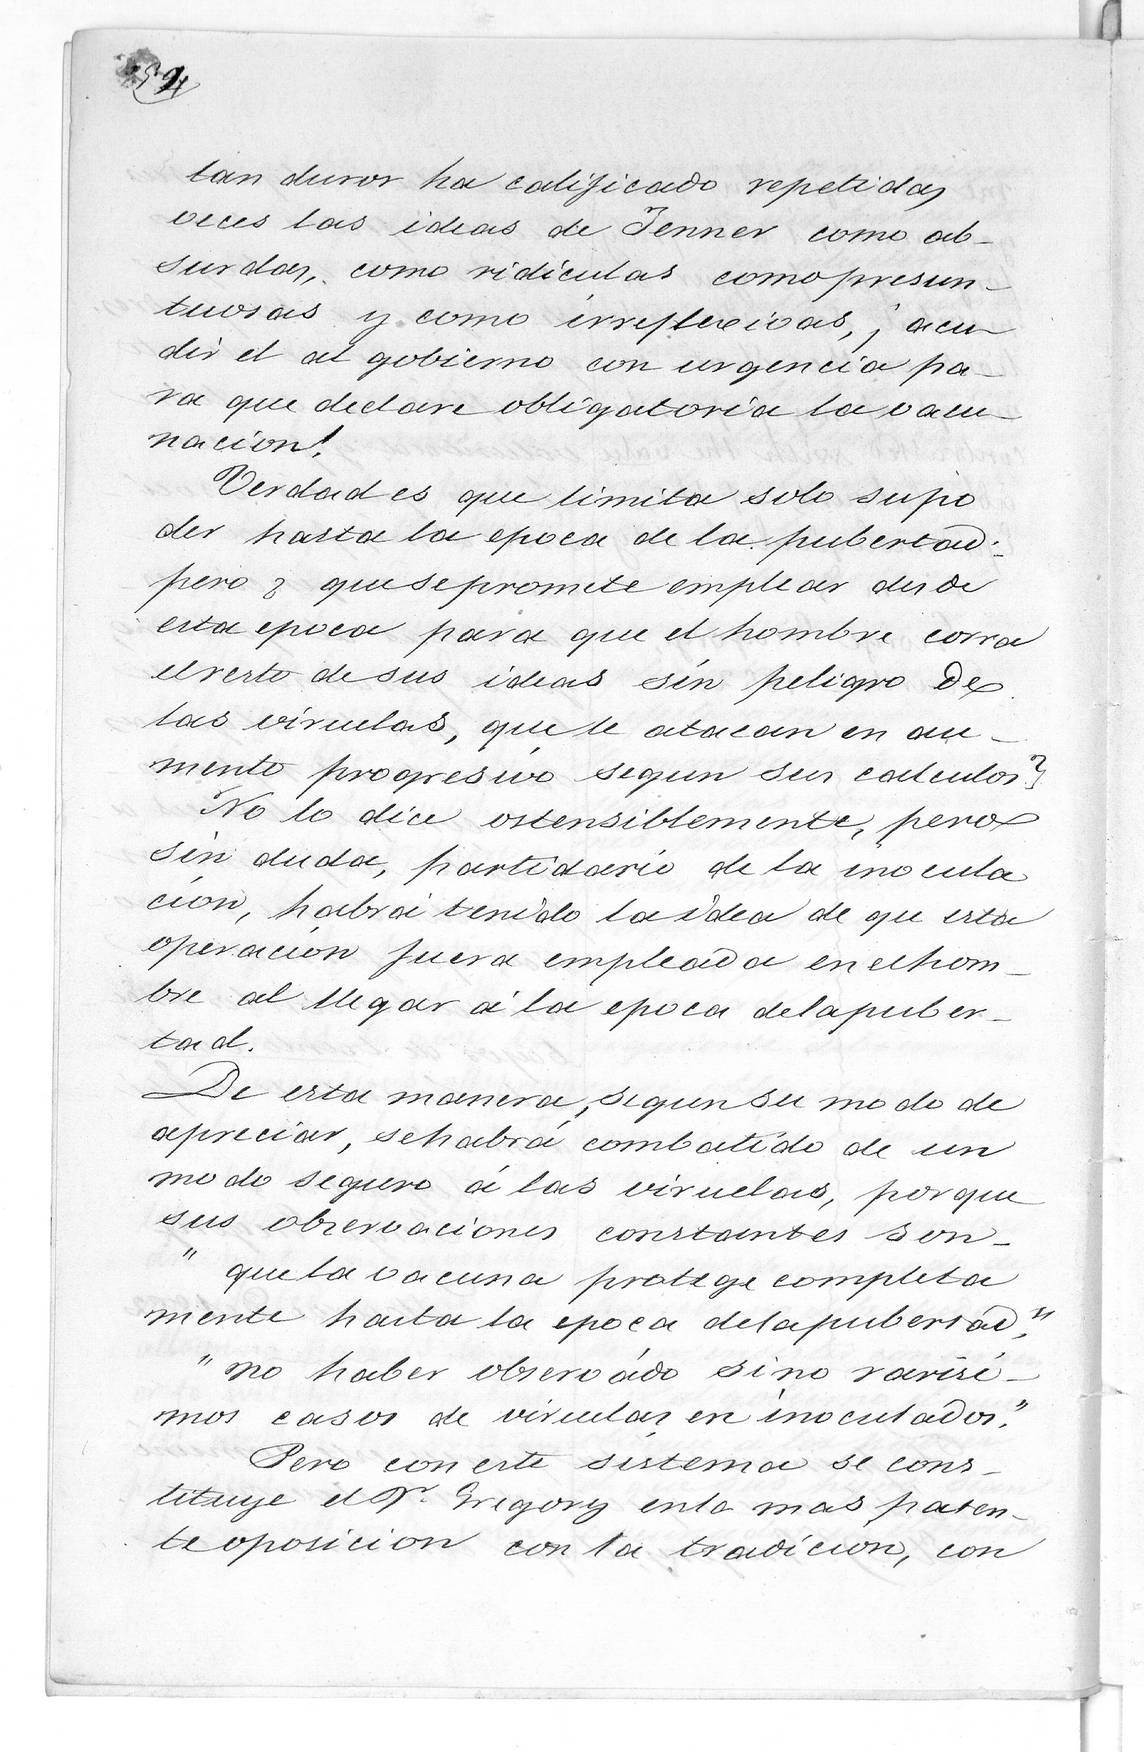 tan duros ha calificado repetidas
veces las ideas de Jenner como ab-
surdas, como ridículas como presun-
tuosas y como irreflexivas, ¡ acu
dir el al gobierno con urgencia pa-
ra que declare obligatoria la vacu
nacion!
Verdad es que limita solo su po
der hasta la epoca de la pubertad:
pero ¿ que se promete emplear desde
esta epoca para que el hombre corra
el resto de sus ideas sin peligro de
las viruelas, que le atacan en au-
mento progresivo segun sus calculos?
No lo dice ostensiblemente, pero
sin duda, partidario de la inocula
cion, habrá tenido la idea de que esta
operacion fuera empleada en el hom-
bre al llegar á la epoca de la puber-
tad.
De esta manera, segun su modo de
apreciar, se habrá combatido de un
modo seguro á las viruelas, porque
sus observaciones constantes son-
" que la vacuna protege completa
mente hasta la epoca de la pubertad,"
" no haber observado sino rarisi-
mos casos de viruelas en inoculados."
Pero con este sistema se cons-
tituye el Dr. Gregory en la mas paten-
te oposicion con la tradicion, con